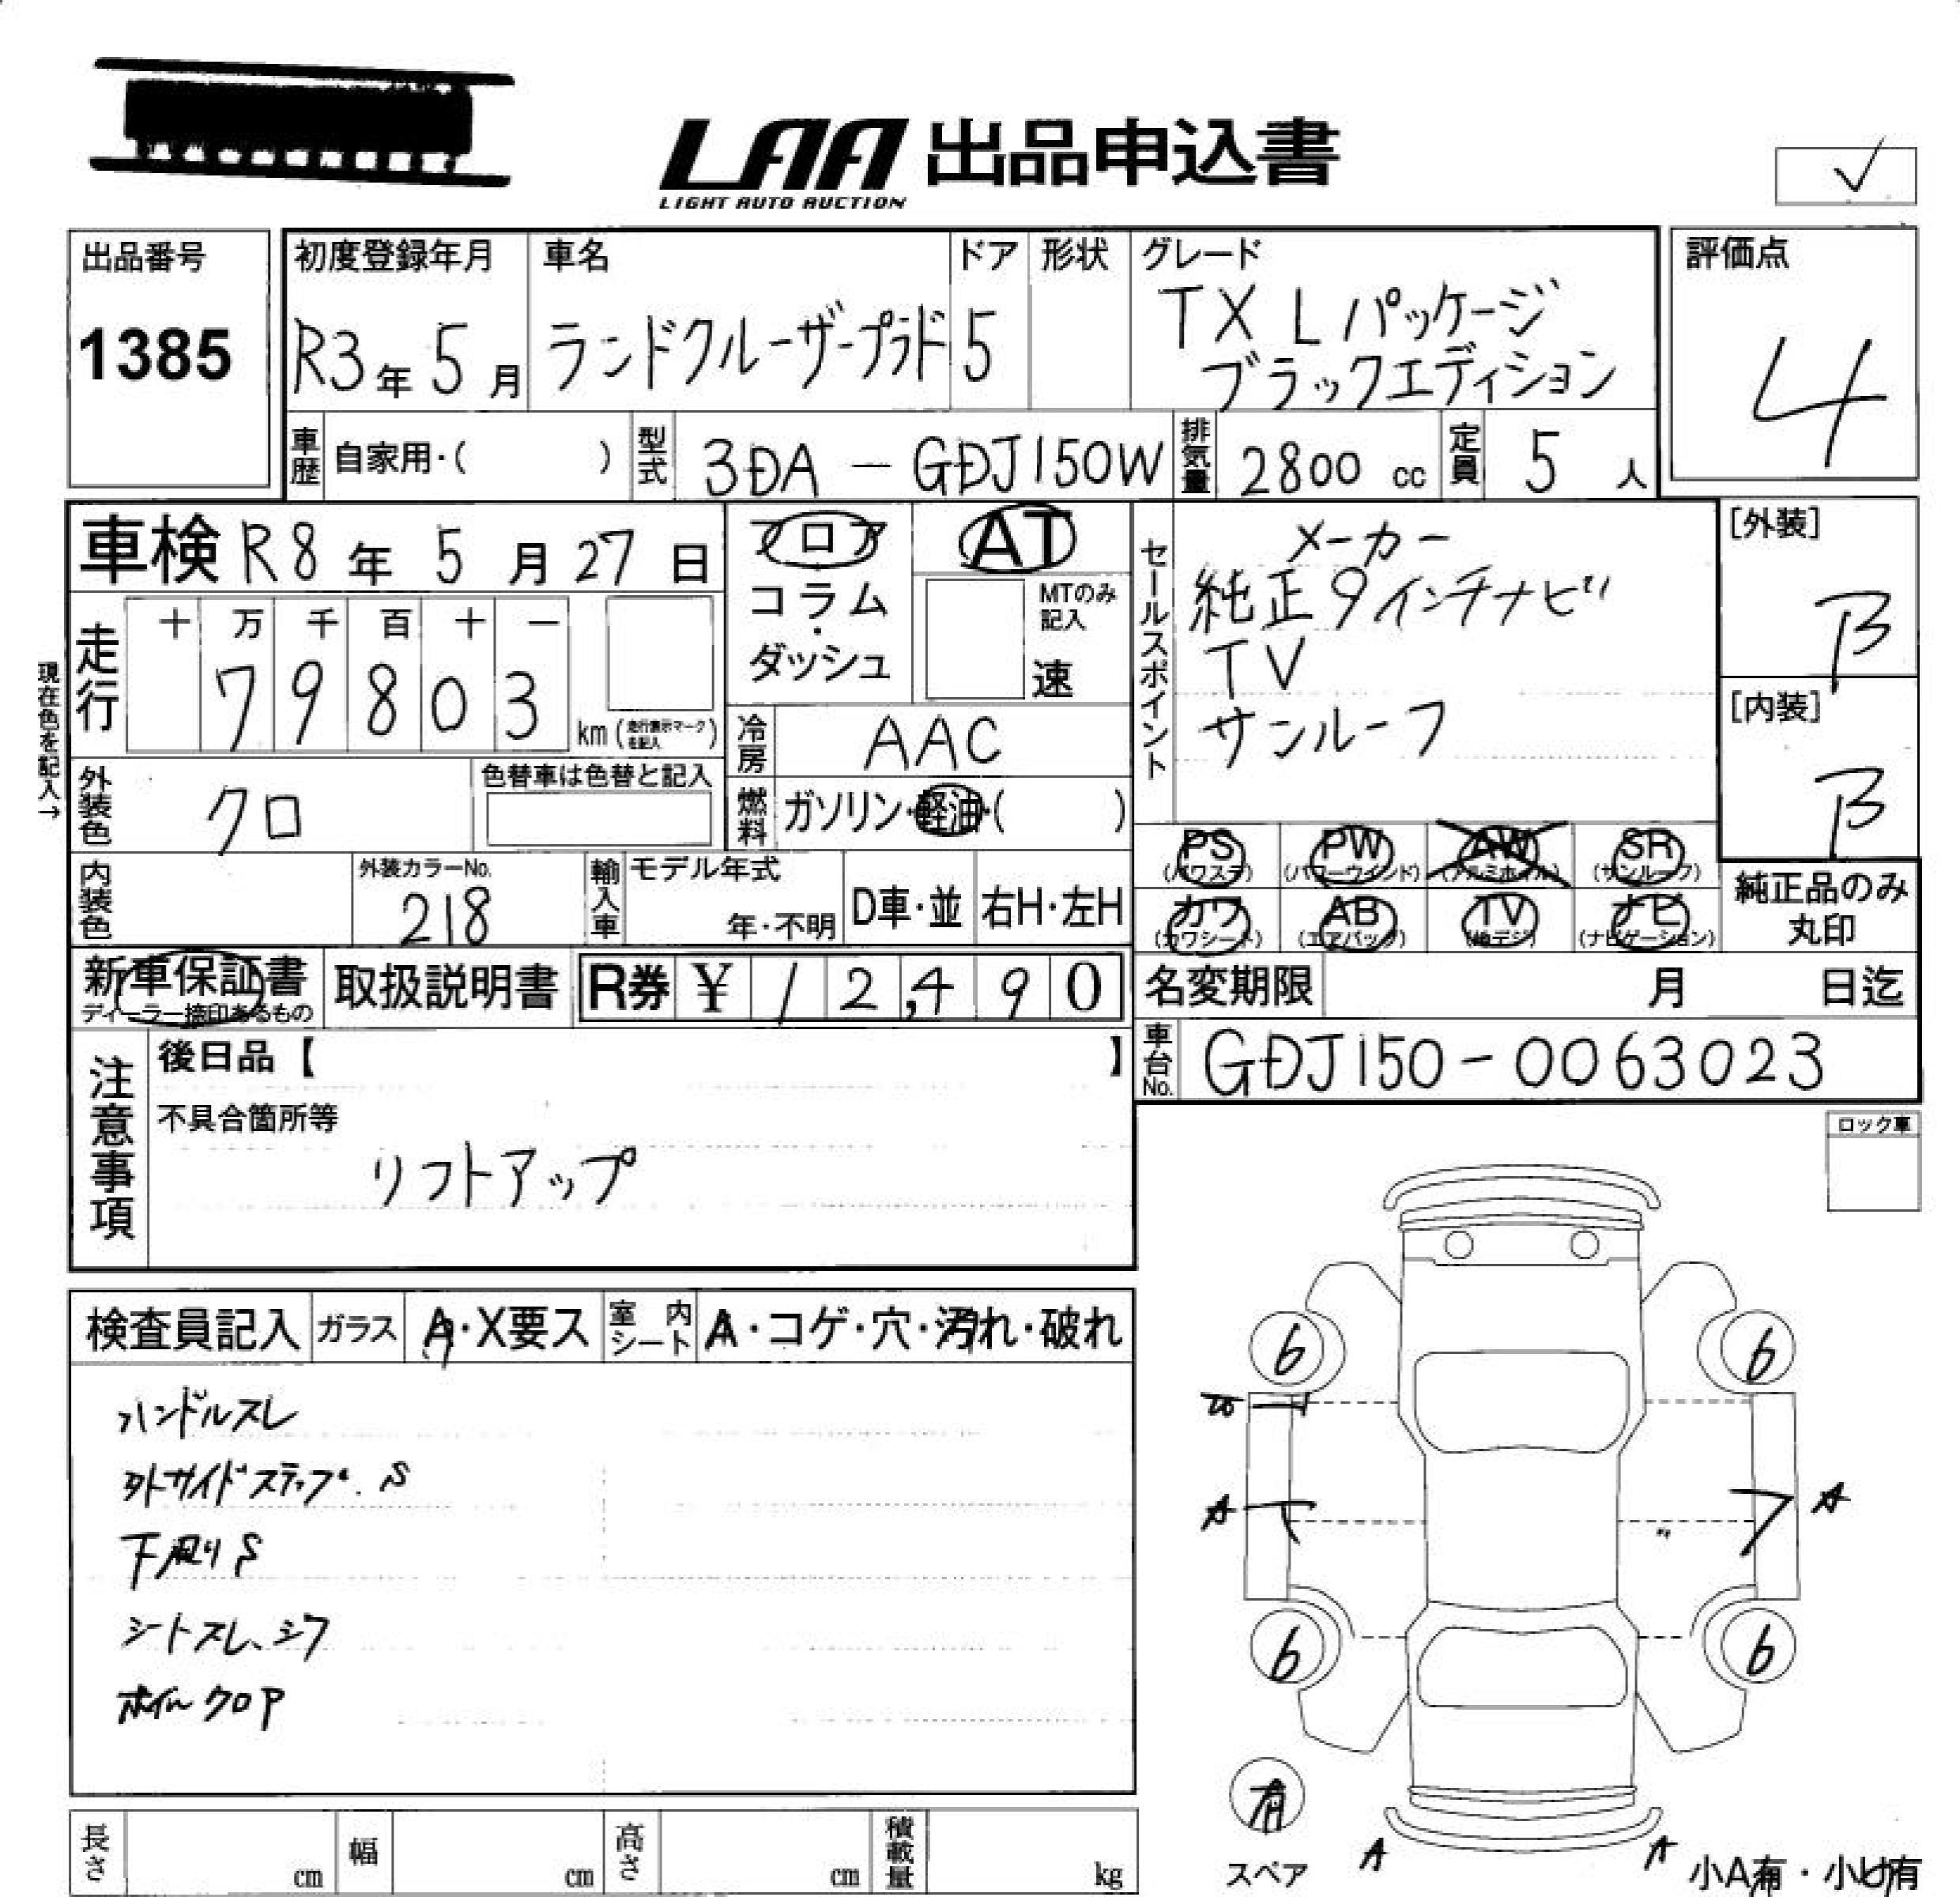 LAA 出品申込書
LIGHT AUTO AUCTION
出品番号
1385
初度登録年月
R3年5月
車名
ランドクルーザープラド
ドア
5
形状
グレード
TX Lパッケージ
ブラックエディション
評価点
4
車歴 自家用・( )
型式 3DA - GDJ150W
排気量 2800 cc
定員 5 人
車検 R8年5月27日
現在色を記入→
走行
十 万 千 百 十 一
7 9 8 0 3
km (走行表示マークを記入)
フロア
コラム
・
ダッシュ
AT
MTのみ
記入
速
冷房 AAC
燃料 ガソリン・軽油・( )
セールスポイント
メーカー
純正9インチナビ
TV
サンルーフ
[外装]
B
[内装]
B
外装色 クロ
色替車は色替と記入
内装色
外装カラーNo.
218
輸入車
モデル年式
年・不明
D車・並
右H・左H
PS (パワステ)
PW (パワーウインド)
AW (アルミホイル)
SR (サンルーフ)
カワ (カワシート)
AB (エアバッグ)
TV (地デジ)
ナビ (ナビゲーション)
純正品のみ
丸印
新車保証書
ディーラー捺印あるもの
取扱説明書
R券 ¥ 12,490
名変期限 月 日迄
車台No. GDJ150-0063023
注意事項
後日品【 】
不具合箇所等
リフトアップ
ロック車
検査員記入
ガラス A・X要ス
室内シート A・コゲ・穴・汚れ・破れ
ハンドルスレ
外サイドステップ.S
下廻りS
シートスレ、シワ
ホイールクロP
6
6
A
A
6
6
有
スペア
A
A
小A有・小U有
長さ cm
幅 cm
高さ cm
積載量 kg